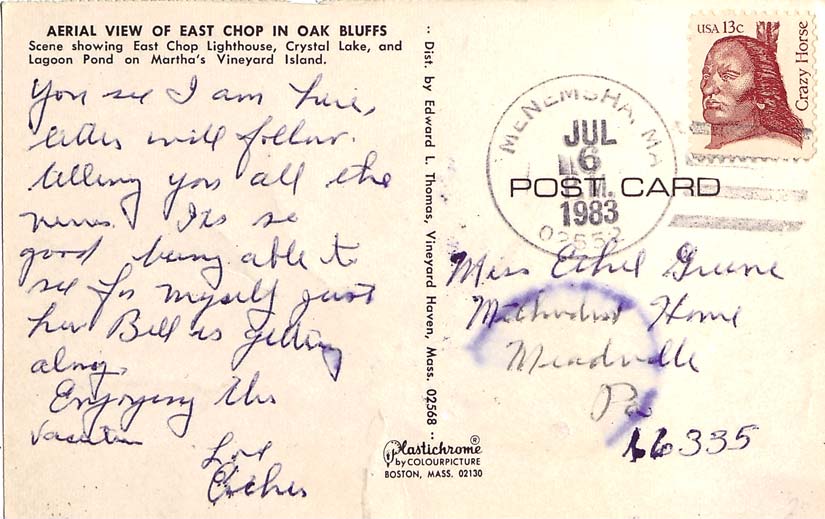 AERIAL VIEW OF EAST CHOP IN OAK BLUFFS
Scene showing East Chop Lighthouse, Crystal Lake, and
Lagoon Pond on Martha's Vineyard Island.
You see I am here,
letter will follow.
telling you all the
news. Its so
good being able to
see for myself just
how Bill is getting
along.
Enjoying this
vacation
Love
Esther
·· Dist. by Edward L. Thomas, Vineyard Haven, Mass. 02568 ··
Plastichrome®
by COLOURPICTURE
BOSTON, MASS. 02130
USA 13c
Crazy Horse
MENEMSHA, MA
JUL
6
1983
02552
POST CARD
Miss Ethel Greene
Methodist Home
Meadville
Pa
16335